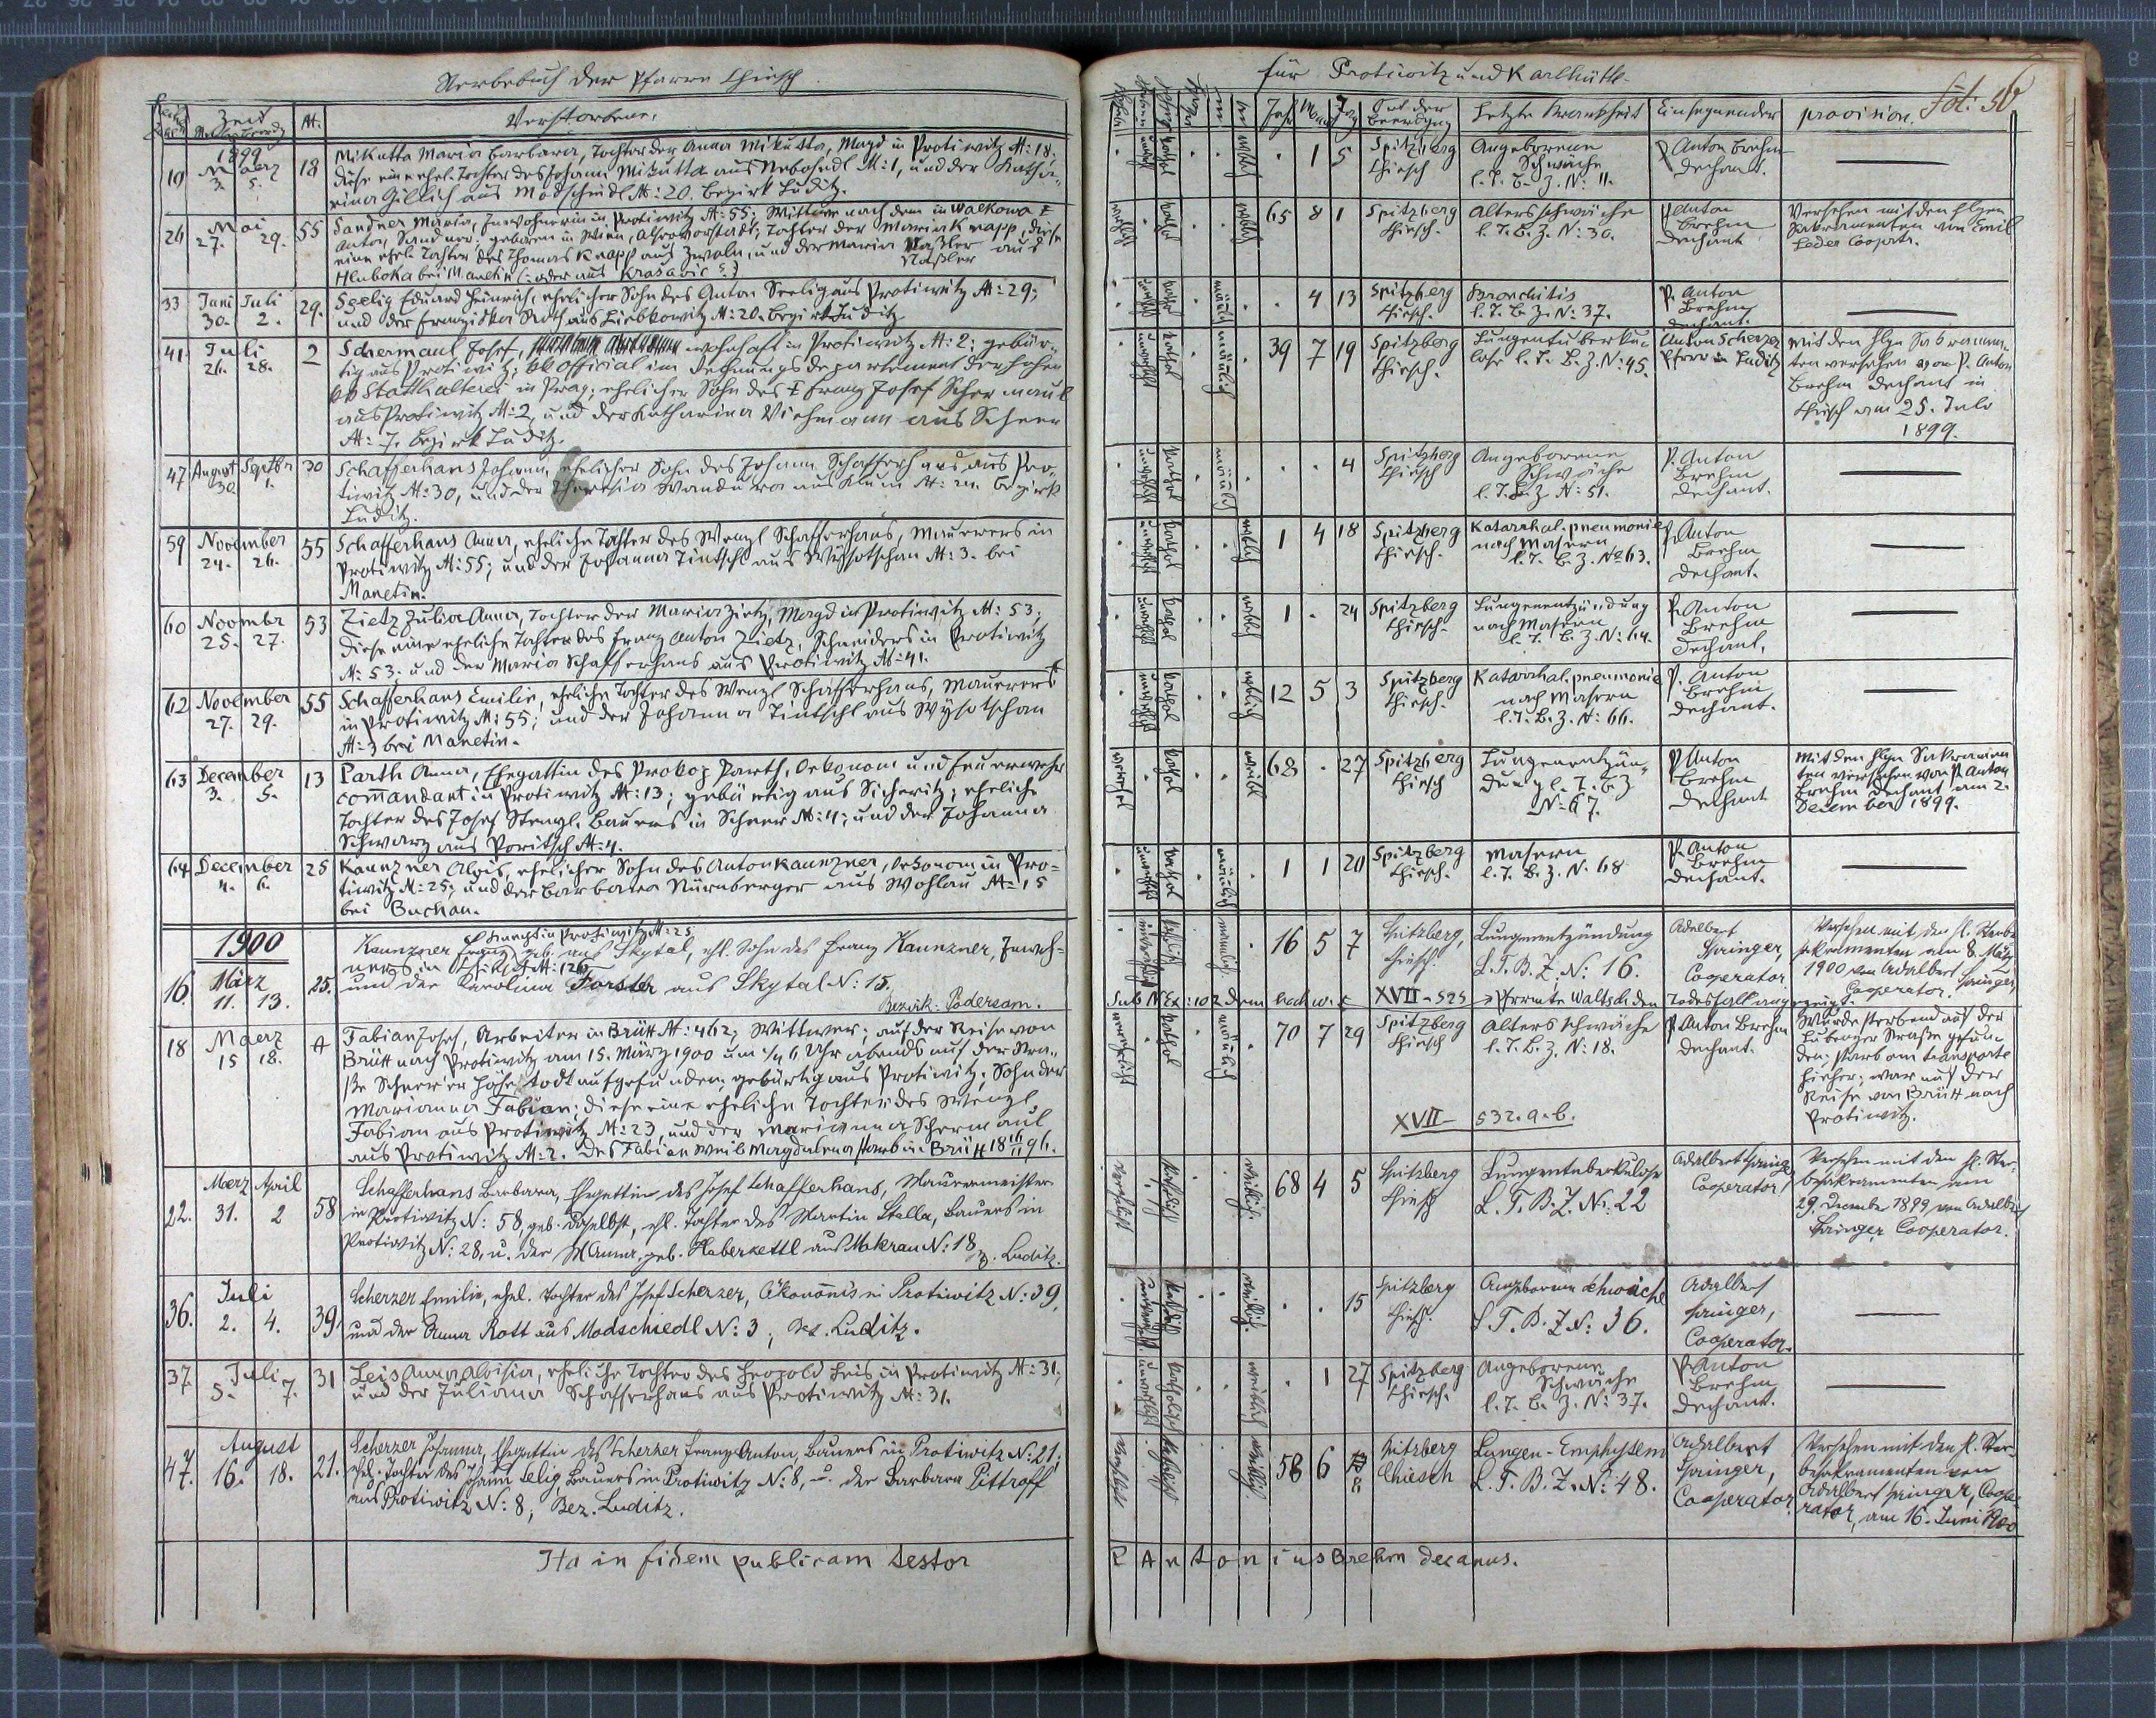 Sterbebuch der Pfarre Chiesch
Zeit
Nr.
Verstorbene.
1899
19 Maerz 3. 5. 18
Mikutta Maria Barbara, Tochter der Anna Mikutta, Magd in Protiwitz N: 18,
diese eine ehel. Tochter des Johann Mikutta aus Nebosedl N: 1, und der Katha-
rina Gillich aus Modschiedl N: 20. Bezirk Luditz.
26 Mai 27. 29. 55
Sandner Maria, Inwohnerin in Protiwitz N: 55; Wittwe nach dem in Walkowa †
Anton Sandner: geboren in Wien, Alservorstadt; Tochter der Maria Knapp, diese
eine ehel. Tochter des Thomas Knapp aus und der Maria Naßler aus
Naßler
Hluboka bei Manetin (: oder aus Krasavic ? :)
33 Juni 30. Juli 2. 29.
Seelig Eduard Heinrich, ehelicher Sohn des Anton Seelig aus Protiwitz N: 29;
und der Franziska Roth aus Liebkowitz N: 20. Bezirk Luditz
41 Juli 26. 28. 2
Schermaul Josef, wohnhaft in Protiwitz N: 2; gebür-
tig aus Protiwitz; kk Official im Rechnungsdepartement der hohen
kk Statthalterei in Prag; ehelicher Sohn des † Franz Josef Schermaul
aus Protiwitz N: 2, und der Katharina Viehmann aus Scheer
N: 7. Bezirk Luditz.
47 August 30. Septbr 1. 30
Schafferhans Johann, ehelicher Sohn des Johann Schafferhans aus Pro-
tiwitz N: 30, und der Theresia Wandura aus Kum N: 21. Bezirk
Luditz.
59 November 24. 26. 55
Schafferhans Anna, eheliche Tochter des Wenzl Schafferhans, Maurers in
Protiwitz N: 55; und der Johanna Tintschl aus Wysotschan N: 3. bei
Manetin.
60 Novembr 25. 27. 53
Zietz Julia Anna, Tochter der Maria Zietz, Magd in Protiwitz N: 53;
diese eine eheliche Tochter des Franz Anton Zietz, Schneiders in Protiwitz
N: 53. und der Maria Schafferhans aus Protiwitz N: 41.
62 November 27. 29. 55
Schafferhans Emilie, eheliche Tochter des Wenzl Schafferhans, Maurers
in Protiwitz N: 55; und der Johanna Tintschl aus Wysotschan
N: 3 bei Manetin.
63 December 3. 5. 13
Parth Anna, Ehegattin des Prokop Parth, Oekonom und Feuerwehr
commandant in Protiwitz N: 13; gebürtig aus Sichewitz; eheliche
Tochter des Josef Stengl, Bauers in Scheer N: 4; und der Johanna
Schwarz aus Poritsch N: 4.
64 December 4. 6. 25
Kaunzner Alois, ehelicher Sohn des Anton Kaunzner, Oekonom in Pro-
tiwitz N: 25; und der Barbara Nürnberger aus Wohlau N: 15
bei Buchau.
1900
16. März 11. 13. 25.
Knecht in Protiwitz N: 25
Kaunzner Franz, geb. aus Skytal, ehl. Sohn des Franz Kaunzner, Inwoh-
ners in N: 126
und der Karolina Forster aus Skytal N: 15.
Bezirk: Podersam.
18 Maerz 15 18.
Fabian Josef, Arbeiter in Brüx N: 462; Wittwer; auf der Reise von
Brüx nach Protiwitz am 15. März 1900 um 1/4 6 Uhr abends auf der Stra-
ße Scheer'er Höhe todt aufgefunden; gebürtig aus Protiwitz; Sohn der
Marianna Fabian; diese eine eheliche Tochter des Wenzl
Fabian aus Protiwitz N: 23, und der Marianna Schermaul
aus Protiwitz N: 2. des Fabian Weib Magdalena starb in Brüx 18 16/11 96.
22. Maerz 31. April 2 58
Schafferhans Barbara, Ehegattin des Josef Schafferhans, Maurermeister
in Protiwitz N: 58, geb. daselbst, ehl. Tochter des Martin Stella, Bauers in
Protiwitz N: 28, u. der M. Anna, geb. Haberzettl aus Mokrau N: 18
B. Luditz.
36. Juli 2. 4. 39.
Scherzer Emilie, ehel. Tochter des Josef Scherzer, Ökonoms in Protiwitz N: 39,
und der Anna Rott aus Modschiedl N: 3, Bez. Luditz.
37 Juli 5. 7. 31
Leis Anna Aloisia, eheliche Tochter des Leopold Leis in Protiwitz N: 31.
und der Juliana Schafferhans aus Protiwitz N: 31.
47. August 16. 18. 21.
Scherzer Johanna, Ehegattin des Scherzer Franz Anton, Bauers in Protiwitz N: 21;
ehel. Tochter des Johann Selig, Bauers in Protiwitz N: 8, u. der Barbara Pittroff
aus Protiwitz N: 8, Bez. Luditz.
Ita in fidem publicam testor
für Protiwitz und Karlhütte.
Fol: 56
Jahr Mon Tag
Ort der Beerdigung
Letzte Krankheit
Einsegnender
provision.
kathol weibl . 1 5
Spitzberg Chiesch
Angeborene Schwäche
l. T. B. Z. N: 11.
P Anton Brehm Dechant.
kathol weibl 65 8 1
Spitzberg Chiesch.
Altersschwäche
l. T. B. Z. N: 30.
P Anton Brehm Dechant
Versehen mit den hlgen
Sakramenten von Emil
Cooperator.
kathol männl . 4 13
Spitzberg Chiesch.
Bronchitis
l. T. B. Z. N: 37.
P. Anton Brehm Dechant.
kathol männlich 39 7 19
Spitzberg Chiesch.
Lungentuberku-
lose l. T. B. Z. N: 45.
Anton Scherzer
Pfarrer in Luditz
mit den hlgn Sakramen-
ten versehen von P. Anton
Brehm Dechant in
Chiesch am 25. Juli
1899.
kathol männlich . . 4
Spitzberg Chiesch
Angeborene Schwäche
l. T. B. Z. N: 51.
P. Anton Brehm Dechant.
kathol weiblich 1 4 18
Spitzberg Chiesch.
Katarrhal. pneumonie
nach Masern
l. T. B. Z. No 63.
P. Anton Brehm Dechant.
kathol weibl 1 . 24
Spitzberg Chiesch.
Lungenentzündung
nach Masern
l. T. B. Z. N: 64.
P. Anton Brehm Dechant.
kathol weiblich 12 5 3
Spitzberg Chiesch.
Katarrhal. pneumonie
nach Masern
l. T. B. Z. N: 66.
P. Anton Brehm Dechant.
kathol weibl 68 . 27
Spitzberg Chiesch
Lungenentzün-
dung l. T. B. Z
N: 67.
P Anton Brehm Dechant
Mit den hlgn Sakramen
ten versehen von P. Anton
Brehm Dechant am 2.
December 1899.
kathol männlich 1 1 20
Spitzberg Chiesch.
Masern
l. T. B. Z. N. 68
P. Anton Brehm Dechant.
männlich . 16 5 7
Spitzberg, Chiesch.
Lungenentzündung
L. T. B. Z. N: 16.
Adalbert Springer, Cooperator
Versehen mit den hl. Sterbe
sakramenten am 8. März
1900 von Adalbert Springer,
Cooperator.
Sub N Ex: 102 dem XVII - 525 Pfarramte Waltsch den Todesfall angezeigt.
kathol männlich 70 7 29
Spitzberg Chiesch
Altersschwäche
l. T. B. Z. N: 18.
P. Anton Brehm Dechant.
Wurde sterbend auf der
Straße gefun-
den; starb am Transporte
hieher; war auf der
Reise von Brüx nach
Protiwitz.
XVII - 532. a-b.
weiblich 68 4 5
Spitzberg Chiesch
Lungentuberkulose
L. T. B. Z. No: 22
Adalbert Springer Cooperator
Versehen mit den hl. Ster-
besakramenten am
29. December 1899 von Adalbert
Springer Cooperator.
weiblich . . 15
Spitzberg Chiesch.
Angeborene Schwäche
L. T. B. Z N: 36.
Adalbert Springer, Cooperator.
katholisch weiblich . 1 27
Spitzberg Chiesch.
Angeborene Schwäche
l. T. B. Z. N: 37.
P. Anton Brehm Dechant.
weiblich 58 6 8
Spitzberg Chiesch
Lungen-Emphysem
L. T. B. Z. N: 48.
Adalbert Springer, Cooperator.
Versehen mit den hl. Ster-
besakramenten von
Adalbert Springer, Coope-
rator, am 16. Juni 1900
P Antonius Brehm decanus.